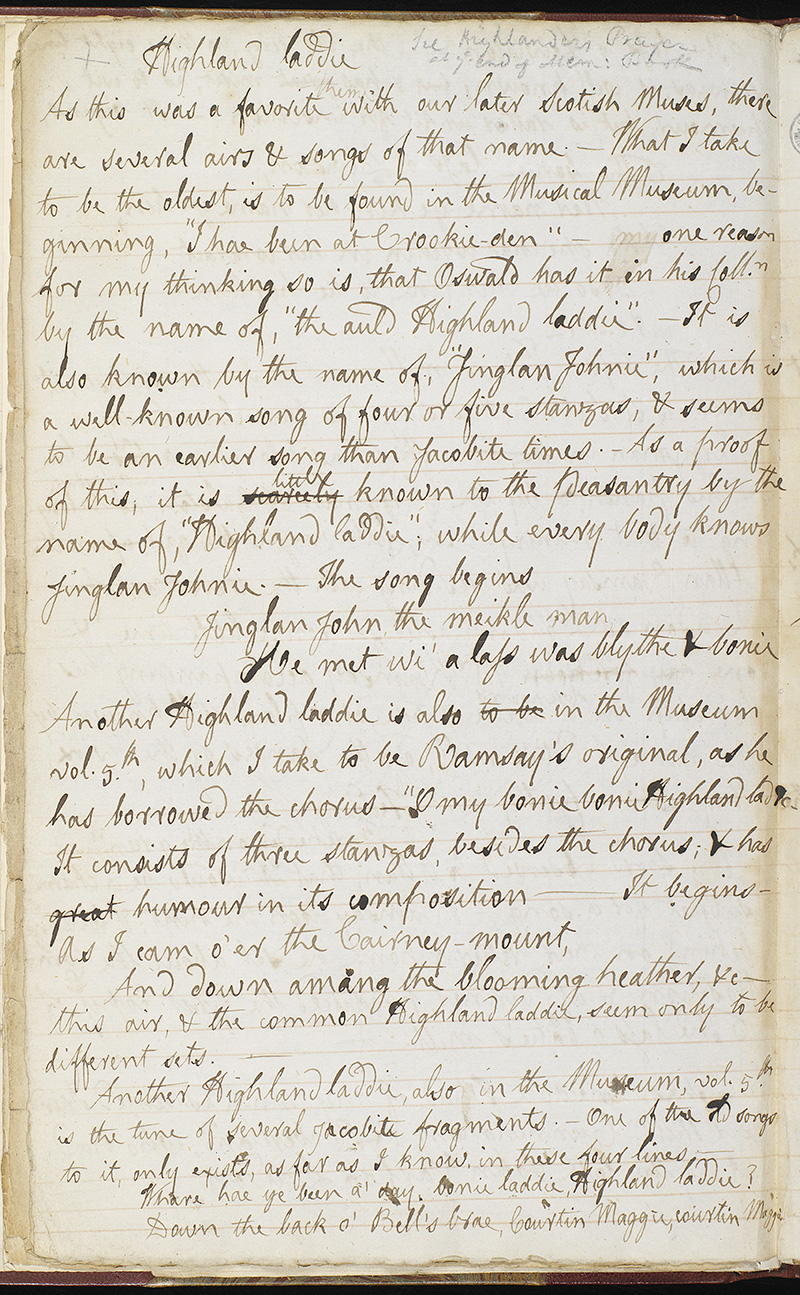 + Highland laddie
See Highlander's Prayer
at ye end of Mem: Book
them
As this was a favorite with our later Scotish Muses, there
are several airs & songs of that name. — What I take
to be the oldest, is to be found in the Musical Museum, be-
ginning, "I hae been at Crookie-den" — my one reason
for my thinking so is, that Oswald has it in his Coll.n
by the name of, "the auld Highland laddie". — It is
also known by the name of, "Jinglan Johnie", which is
a well-known song of four or five stanzas, & seems
to be an earlier song than Jacobite times. — As a proof
little
of this, it is scarcely known to the Peasantry by the
name of, "Highland laddie"; while every body knows
Jinglan Johnie. — The song begins
Jinglan John, the meikle man
He met wi' a lass was blythe & bonie
Another Highland laddie is also to be in the Museum
vol. 5.th, which I take to be Ramsay's original, as he
has borrowed the chorus — "O my bonie bonie Highland lad &c-
It consists of three stanzas, besides the chorus; & has
great humour in its composition — It begins —
As I cam o'er the Cairney-mount,
And down amang the blooming heather, &c —
this air, & the common Highland laddie, seem only to be
different sets. —
Another Highland laddie, also in the Museum, vol. 5.th
is the tune of several Jacobite fragments. — One of the old songs
to it, only exists, as far as I know, in these four lines —
Whare hae ye been a' day, bonie laddie, Highland laddie?
Down the back o' Bell's brae, Courtin Maggie, courtin Maggie